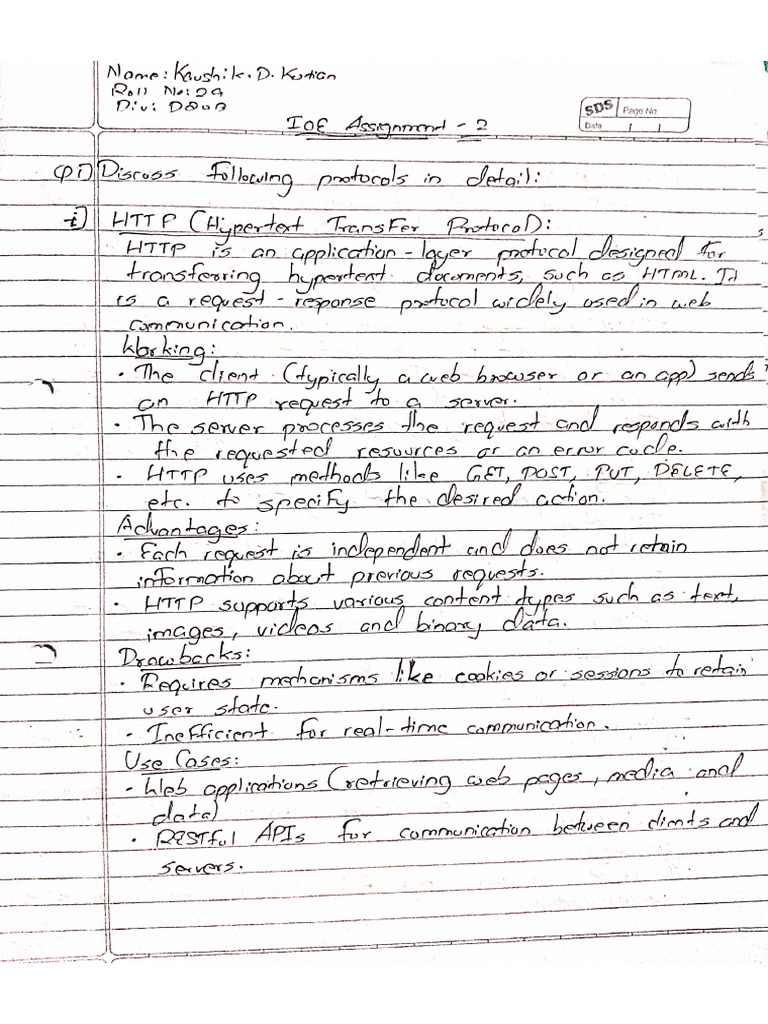 Name: Kaushik. D. Kotian
Roll No: 29
Div: D20B
SDS Page No.
Date / /
IOE Assignment - 2
Q1) Discuss following protocols in detail:
i) HTTP (Hypertext Transfer Protocol):
HTTP is an application-layer protocol designed for
transferring hypertext documents, such as HTML. It
is a request-response protocol widely used in web
communication.
Working:
• The client (typically a web browser or an app) sends
an HTTP request to a server.
• The server processes the request and responds with
the requested resources or an error code.
• HTTP uses methods like GET, POST, PUT, DELETE,
etc. to specify the desired action.
Advantages:
• Each request is independent and does not retain
information about previous requests.
• HTTP supports various content types such as text,
images, videos and binary data.
Drawbacks:
• Requires mechanisms like cookies or sessions to retain
user state.
• Inefficient for real-time communication.
Use Cases:
• Web applications (retrieving web pages, media and
data)
• RESTful APIs for communication between clients and
servers.